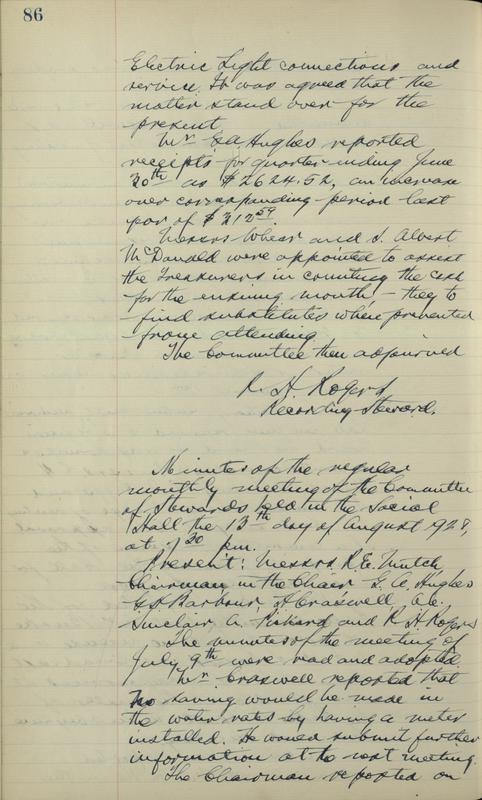 86
Electric Light connections and
service. It was agreed that the
matter stand over for the
present
Mr. G A Hughes reported
receipts for quarter ending June
30th as $2624.52, an increase
over corresponding period last
year of
Messrs Whear and S. Albert
McDonald were appointed to assist
the Treasurers in counting the cash
for the ensuing month, - they to
find substitutes when prevented
from attending
The Committee then adjourned
R. H. Rogers
Recording Steward.
Minutes of the regular
monthly meeting of the Committee
of Stewards held in the Social
Hall the 13th day of August 1928,
at 7 30 p.m.
Present: Messrs R.E. Mutch
Chairman in the Chair G. A. Hughes
G.D. Barbour, H Craswell,
Sinclair A. Pickard and R H Rogers
The minutes of the meeting of
July 9th were read and adopted.
Mr Craswell reported that
no saving would be made in
the water rates by having a meter
installed. He would submit further
information at the next meeting.
The Chairman reported on